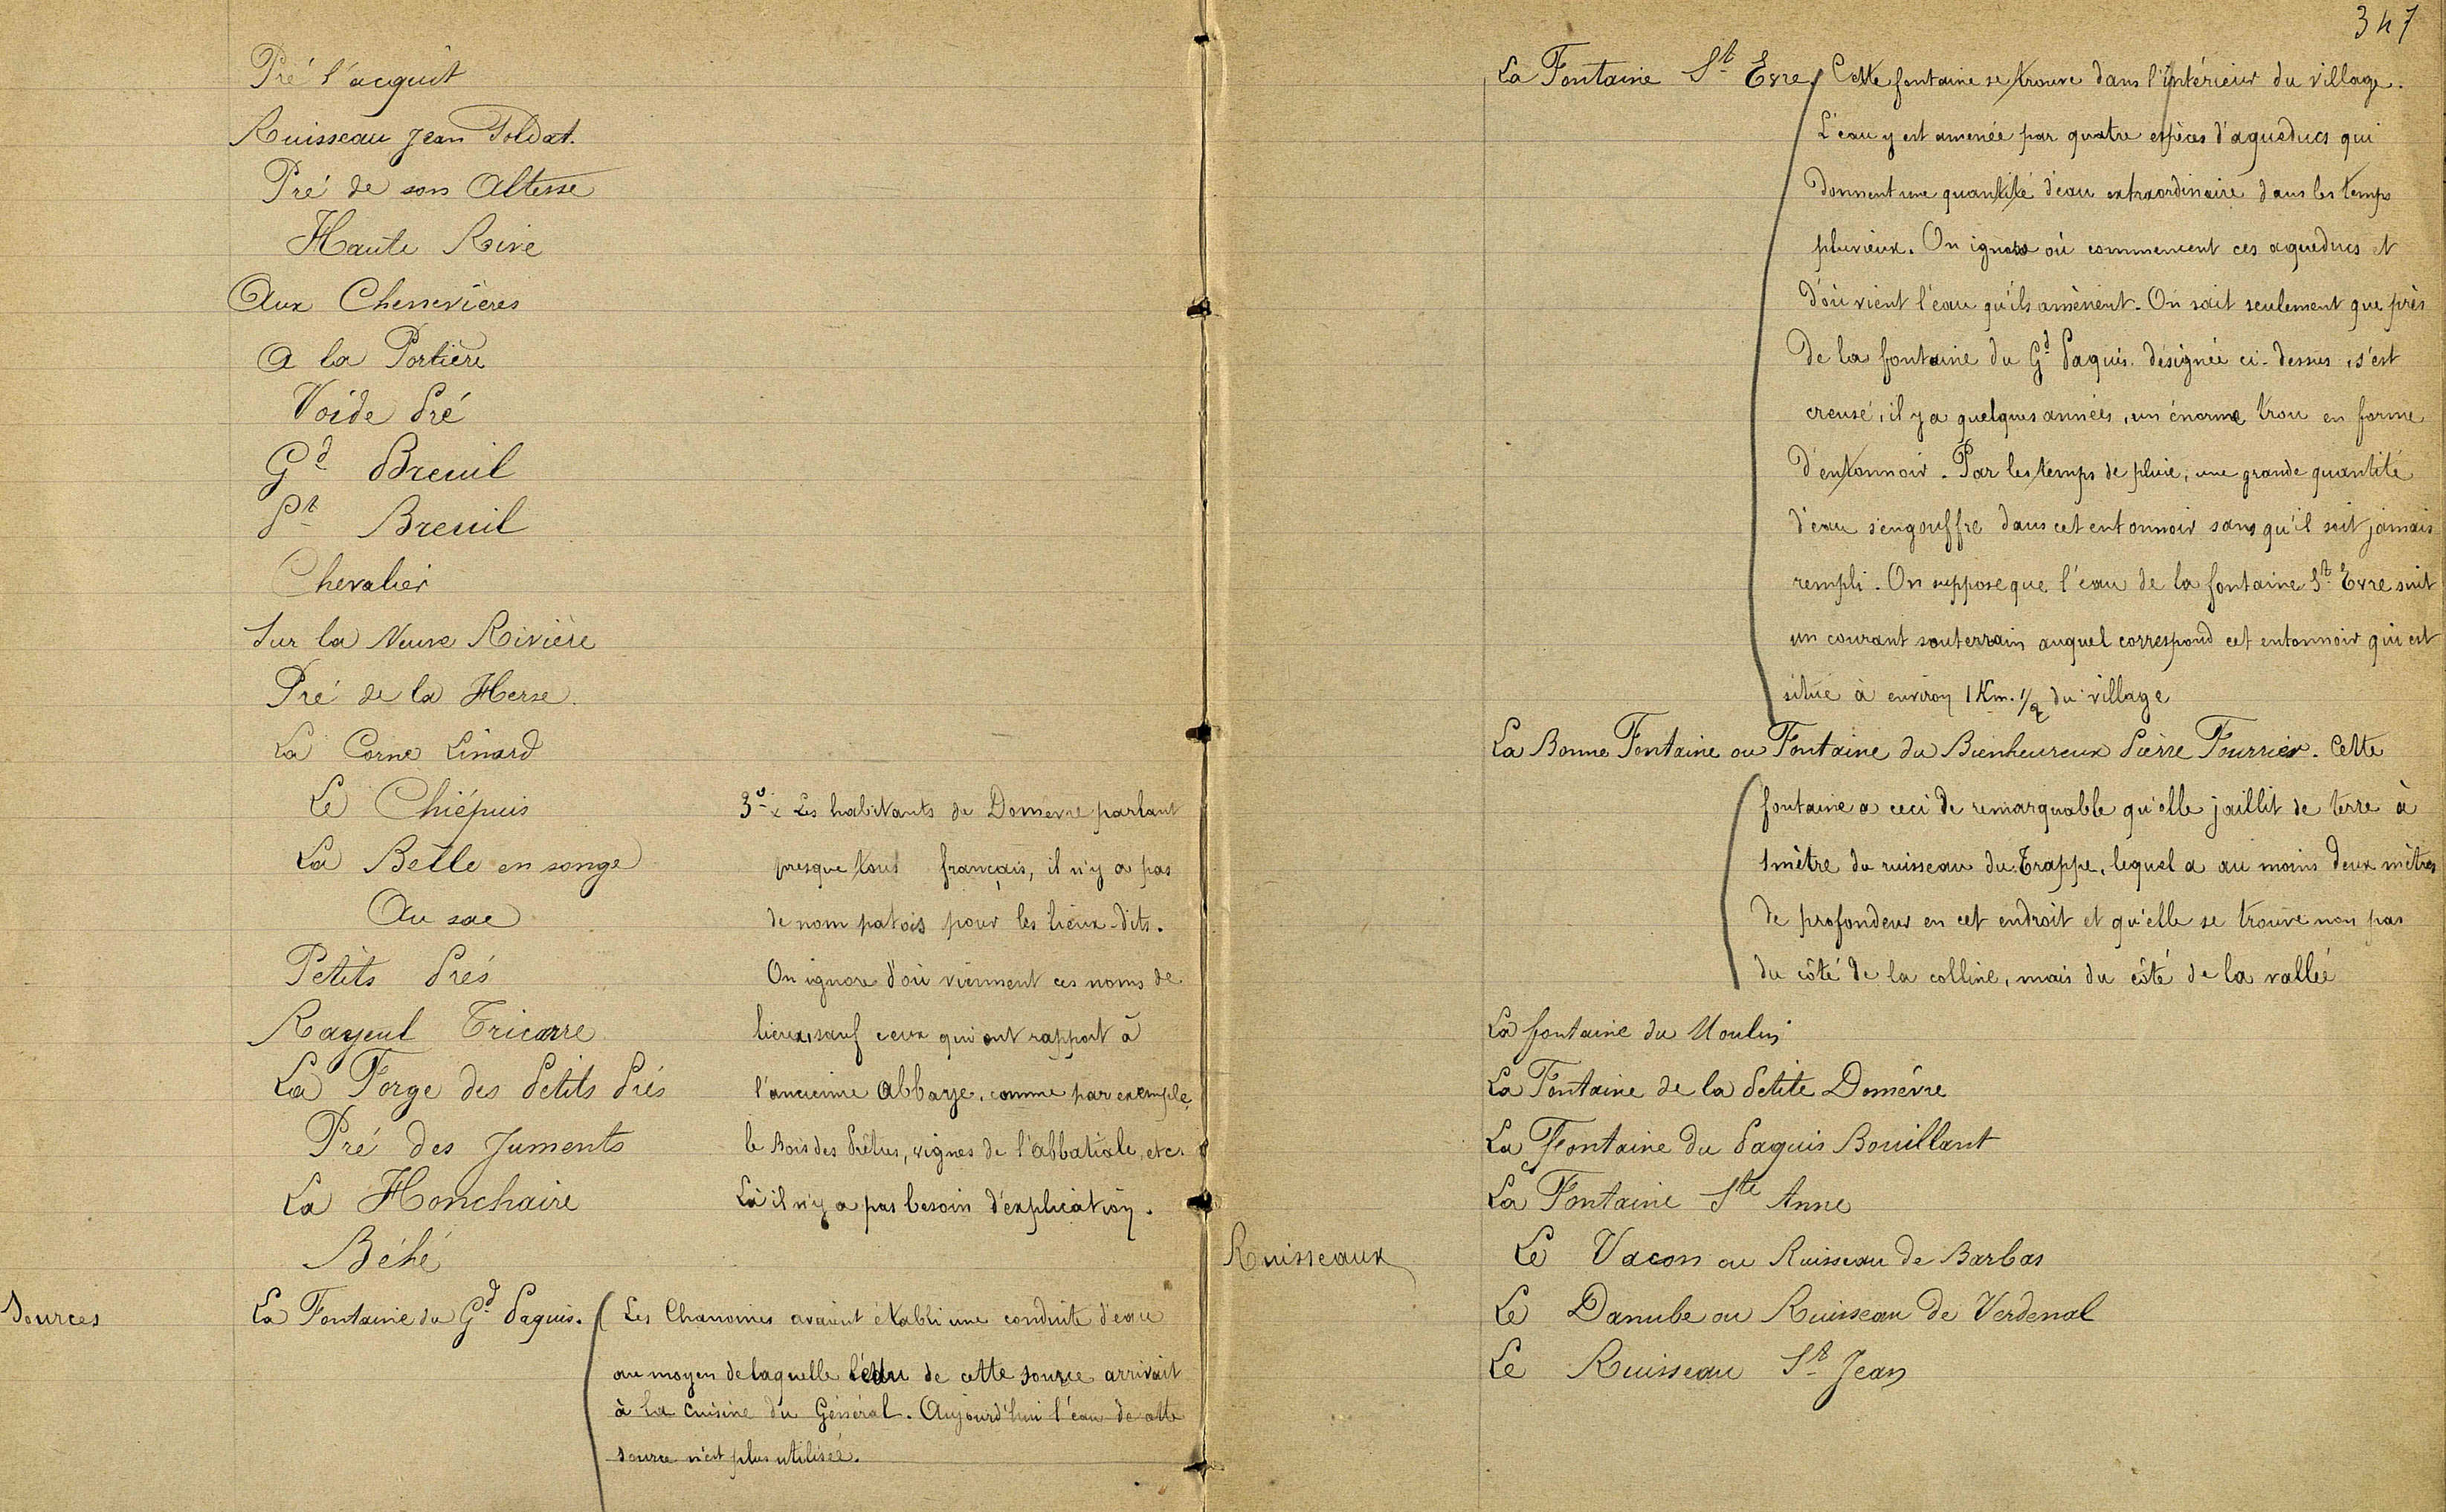 Pré l'acquit
Ruisseau Jean Soldat.
Pré de son Altesse
Haute Rive
Aux Chenevières
A la Portière
Voide Pré
Gd Breuil
Pt Breuil
Chevalier
Sur la Neuve Rivière
Pré de la Herse.
La Corne Linard
Le Chiépuis
La Belle en songe
Au sac
Petits Prés
Rayeul Tricarre
La Forge des Petits Prés
Pré des Juments
La Honchaire
Béhé
3o Les habitants de Domèvre parlant
presque tous français, il n'y a pas
de nom patois pour les lieux-dits.
On ignore d'où viennent ces noms de
lieux, sauf ceux qui ont rapport à
l'ancienne Abbaye, comme par exemple,
le Bois des Prêtres, vignes de l'abbatiale, etc.
Là il n'y a pas besoin d'explication.
Sources
La Fontaine du Gd Paquis. Les Chanoines avaient établi une conduite d'eau
au moyen de laquelle l'eau de cette source arrivait
à la cuisine du Général. Aujourd'hui l'eau de cette
source n'est plus utilisée.
347
La Fontaine St Evre. Cette fontaine se trouve dans l'intérieur du village.
L'eau y est amenée par quatre espèces d'aqueducs qui
donnent une quantité d'eau extraordinaire dans les temps
pluvieux. On ignore où commencent ces aqueducs et
d'où vient l'eau qu'ils amènent. On sait seulement que près
de la fontaine du Gd Paquis désignée ci-dessus, s'est
creusé, il y a quelques années, un énorme trou en forme
d'entonnoir. Par les temps de pluie, une grande quantité
d'eau s'engouffre dans cet entonnoir sans qu'il soit jamais
rempli. On suppose que l'eau de la fontaine St Evre suit
un courant souterrain auquel correspond cet entonnoir qui est
situé à environ 1 Km. 1/2 du village
La Bonne Fontaine ou Fontaine du Bienheureux Pierre Fourrier. Cette
fontaine a ceci de remarquable qu'elle jaillit de terre à
1 mètre du ruisseau du Trappe, lequel a au moins deux mètres
de profondeur en cet endroit et qu'elle se trouve non pas
du côté de la colline, mais du côté de la vallée
La fontaine du Moulin
La Fontaine de la Petite Domèvre
La Fontaine du Paquis Bouillant
La Fontaine Ste Anne
Ruisseaux
Le Vacon ou Ruisseau de Barbas
Le Danube ou Ruisseau de Verdenal
Le Ruisseau St Jean